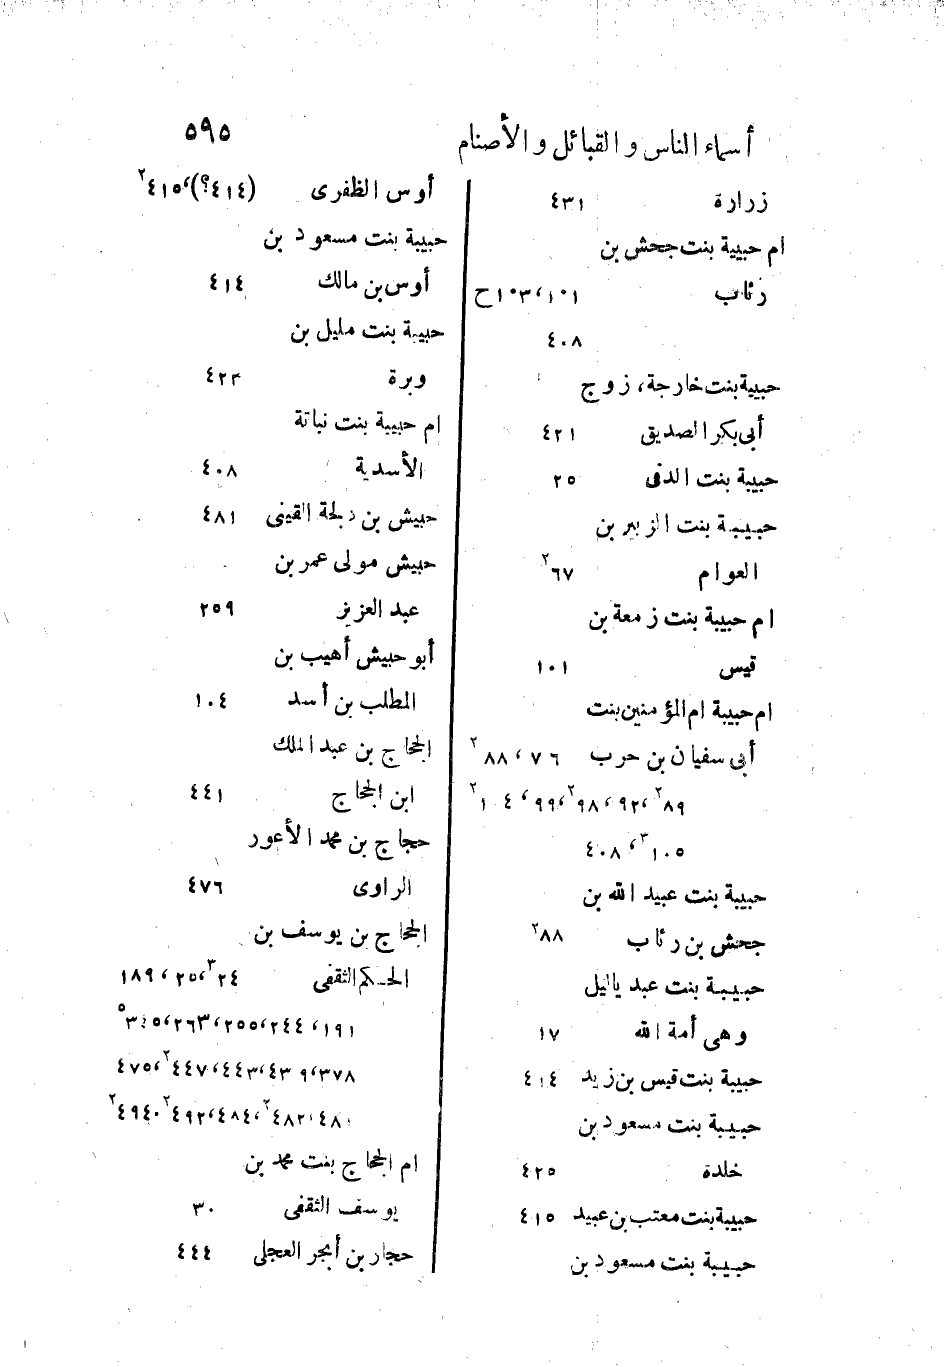 أسماء الناس والقبائل والأصنام ٥٩٥
زرارة ٤٣١
ام حبيبة بنت جحش بن
رئاب ١٠١، ١٠٣ح
٤٠٨
حبيبة بنت خارجة، زوج
أبى بكر الصديق ٤٢١
حبيبة بنت الدفى ٢٥
حبيبة بنت الزبير بن
العوام ٦٧²
ام حبيبة بنت زمعة بن
قيس ١٠١
ام حبيبة ام المؤمنين بنت
أبى سفيان بن حرب ٧٦، ٨٨²
٨٩²، ٩٢، ٩٨²، ٩٩، ١٠٤²
١٠٥³، ٤٠٨
حبيبة بنت عبيد الله بن
جحش بن رئاب ٨٨²
حبيبة بنت عبد ياليل
وهى أمة الله ١٧
حبيبة بنت قيس بن زيد ٤١٤
حبيبة بنت مسعود بن
خلدة ٤٢٥
حبيبة بنت معتب بن عبيد ٤١٥
حبيبة بنت مسعود بن
أوس الظفرى (٤١٤؟)، ٤١٥²
حبيبة بنت مسعود بن
أوس بن مالك ٤١٤
حبيبة بنت مليل بن
وبرة ٤٢٣
ام حبيبة بنت نباتة
الأسدية ٤٠٨
حبيش بن دلجة القينى ٤٨١
حبيش مولى عمر بن
عبد العزيز ٢٥٩
أبو حبيش أهيب بن
المطلب بن أسد ١٠٤
الحجاج بن عبد الملك
ابن الحجاج ٤٤١
حجاج بن محمد الأعور
الراوى ٤٧٦
الحجاج بن يوسف بن
الحكم الثقفى ٢٤³، ٢٥، ١٨٩
١٩١، ٢٤٤، ٢٥٥، ٢٦٣، ٣٤٥⁵
٣٧٨، ٤٣٩، ٤٤٣، ٤٤٧²، ٤٧٥
٤٨١، ٤٨٢²، ٤٨٤، ٤٩٢²، ٤٩٤²
ام الحجاج بنت محمد بن
يوسف الثقفى ٣٠
حجار بن أبجر العجلى ٤٤٤